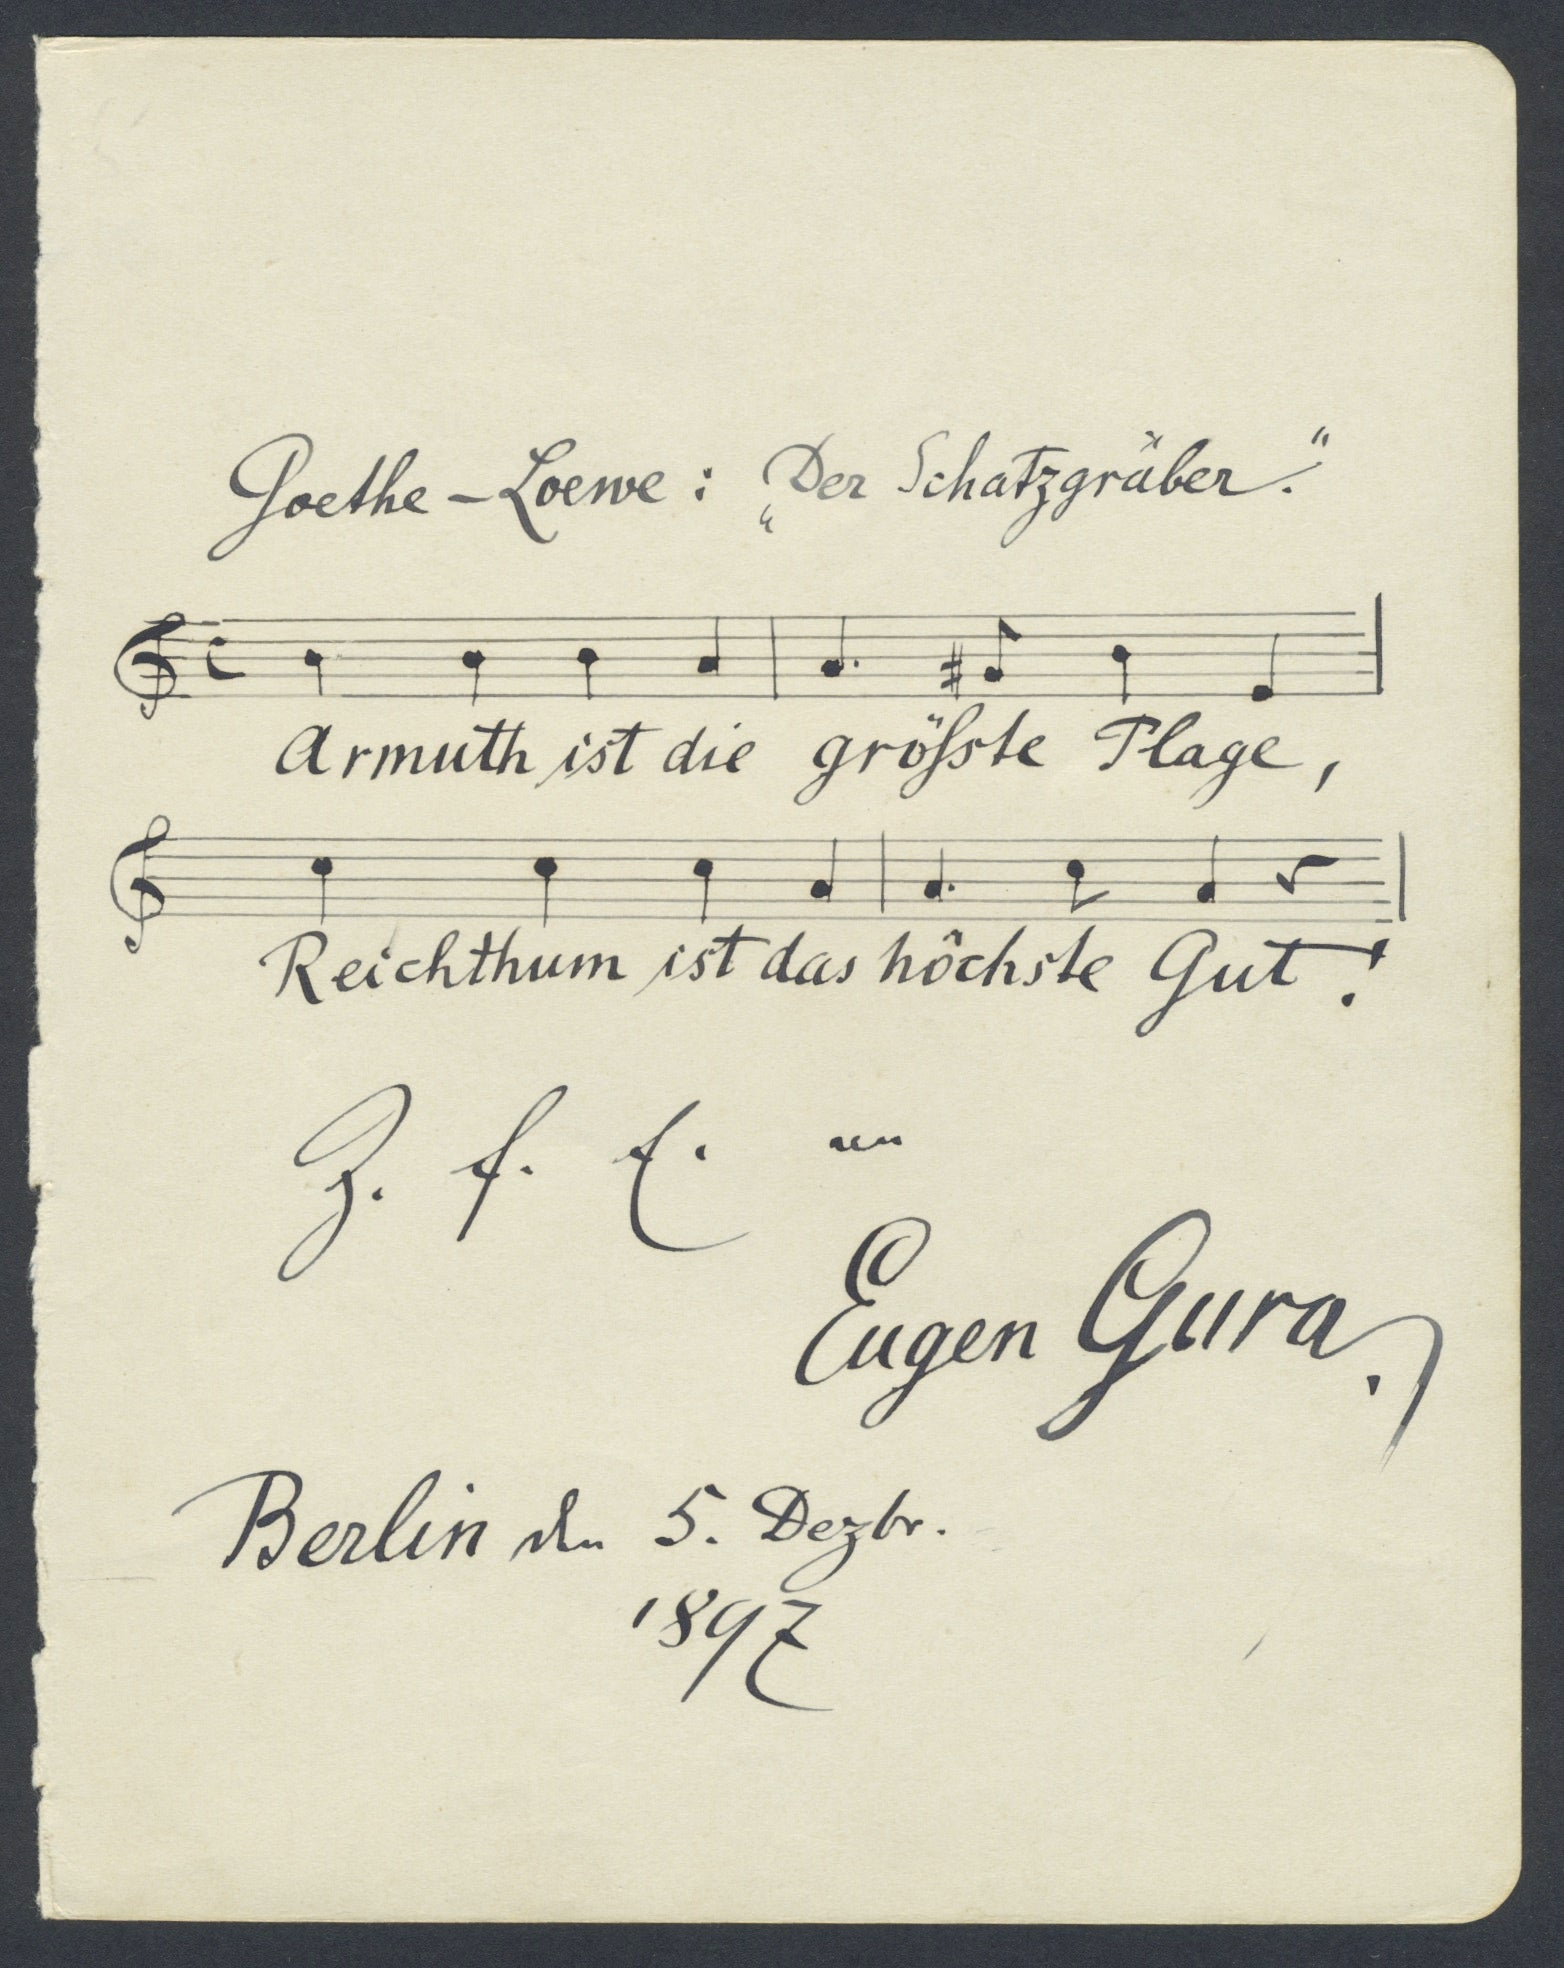 Goethe – Loewe : „Der Schatzgräber.“
Armuth ist die größste Plage,
Reichthum ist das höchste Gut!
Z. f. E. an
Eugen Gura.
Berlin den 5. Dezbr.
1897